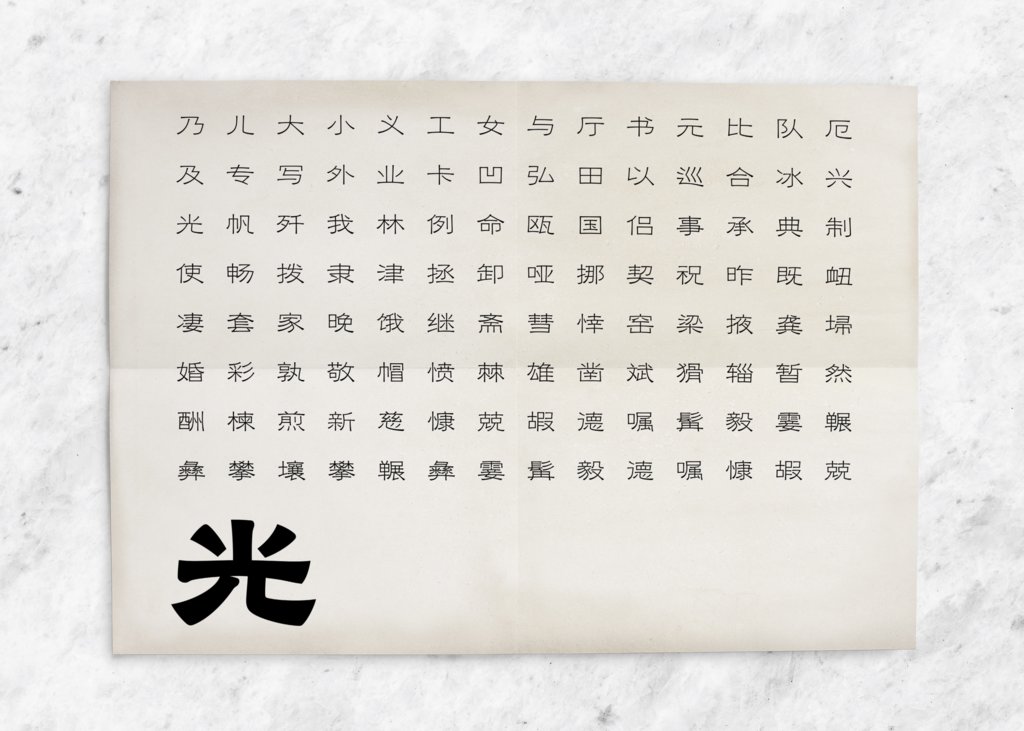 乃儿大小义工女与厅书元比队厄
及专写外业卡凹弘田以巡合冰兴
光帆歼我林例命瓯国侣事承典制
使畅拨隶津拯卸哑挪契祝昨既衄
凄套家晚饿继斋彗悻窑梁掖龚埽
婚彩孰敬帽愤棘雄凿斌猾辎暂然
酬楝煎新慈慷兢嘏德嘱髯毅霎辗
彝攀壤攀辗彝霎髯毅德嘱慷嘏兢
光